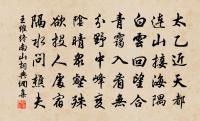 太乙近天都
連山接海隅
白雲回望合
青靄入看無
分野中峰變
陰晴眾壑殊
欲投人處宿
隔水問樵夫
王維終南山詞